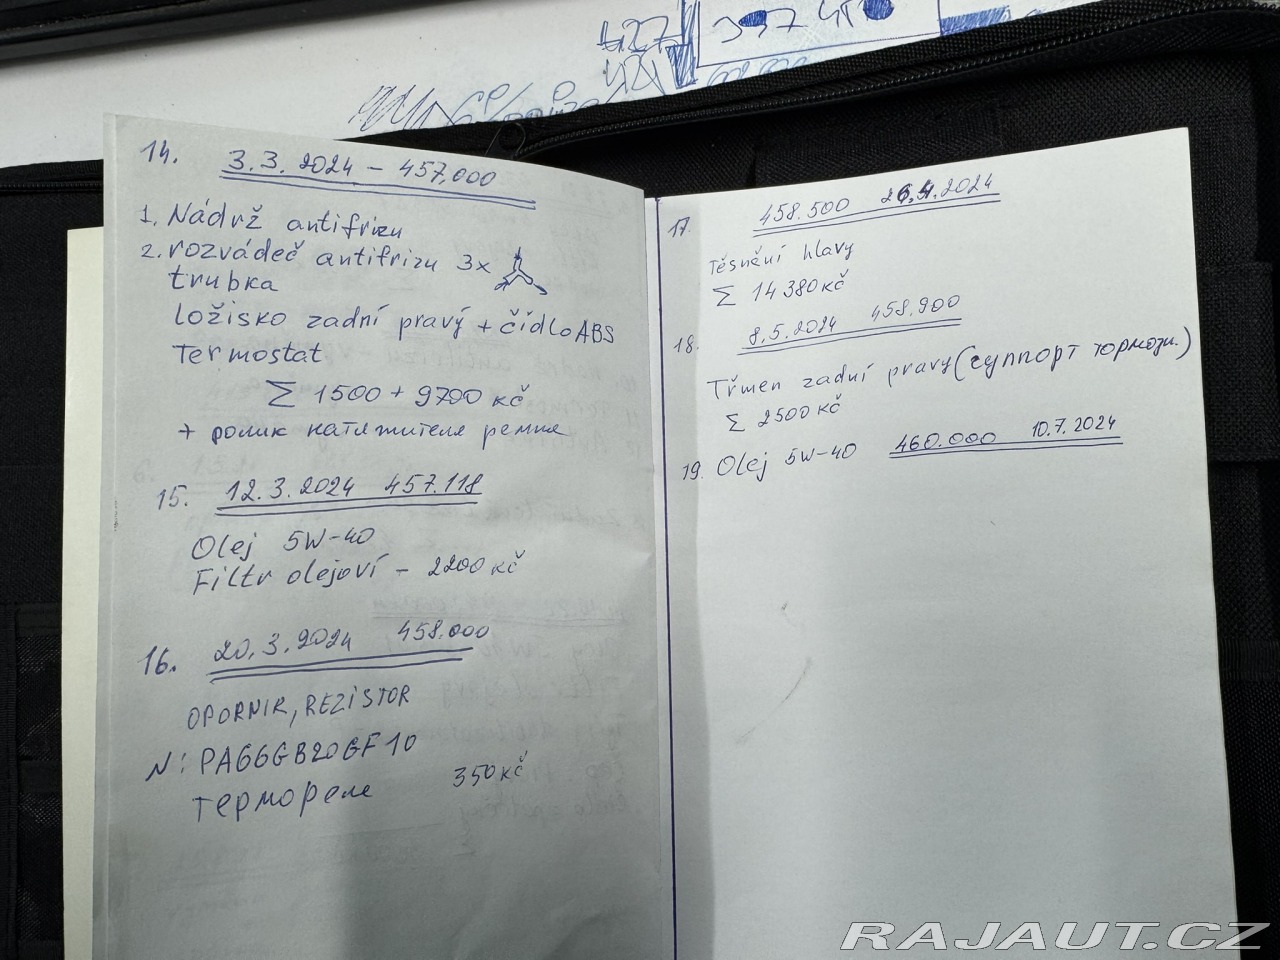 427 397 45
14. 3.3.2024 – 457.000
1. Nádrž antifrizu
2. rozváděč antifrizu 3x
trubka
Ložisko zadní pravý + čídlo ABS
Termostat
Σ 1500 + 9700 Kč
+ ролик натяжителя ремня
15. 12.3.2024 457.118
Olej 5W-40
Filtr olejoví – 2200 Kč
16. 20.3.2024 458.000
OPORNIK, REZISTOR
N: PA66GB20GF10
Термореле 350 Kč
17. 458.500 26.4.2024
Těsnění hlavy
Σ 14 380 Kč
18. 8.5.2024 458.900
Třmen zadní pravy (суппорт тормозн.)
Σ 2500 Kč
19. Olej 5W-40 460.000 10.7.2024
RAJAUT.CZ